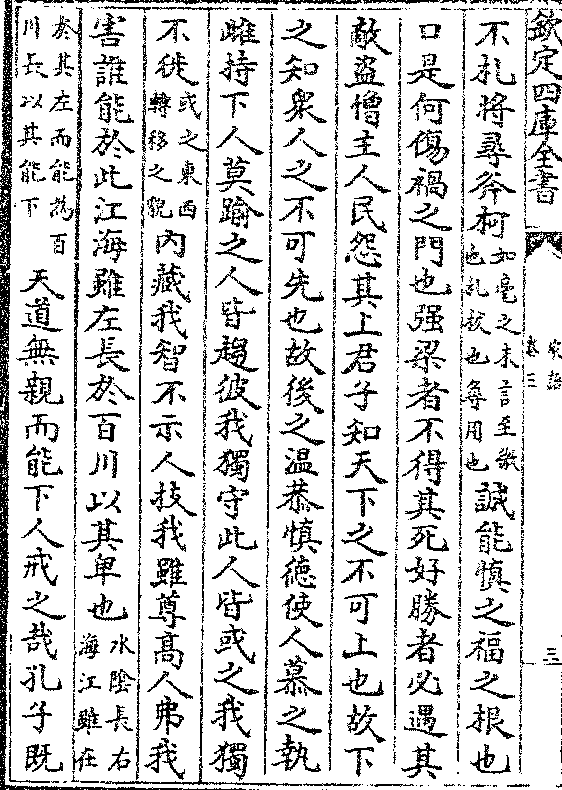 欽定四庫全書
家語
卷三
三
不扎將尋斧柯如毫之末言至微也扎拔也尋用也誠能慎之福之根也
口是何傷禍之門也强梁者不得其死好勝者必遇其
敵盜憎主人民怨其上君子知天下之不可上也故下
之知衆人之不可先也故後之温恭慎德使人慕之執
雌持下人莫踰之人皆趨彼我獨守此人皆或之我獨
不徙或之東西轉移之貌内藏我智不示人技我雖尊髙人弗我
害誰能於此江海雖左長於百川以其卑也水陰長右海江雖在
於其左而能為百川長以其能下天道無親而能下人戒之哉孔子既